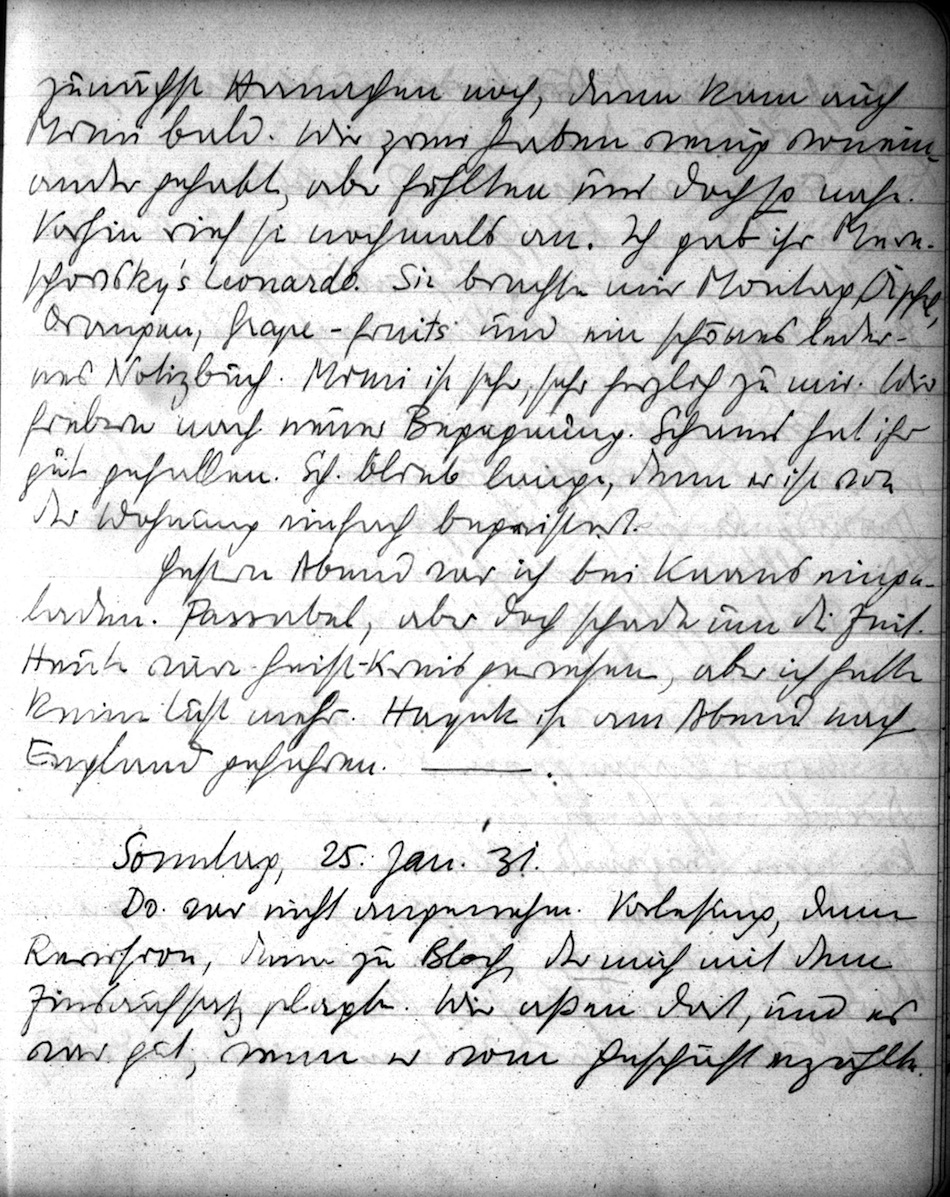 zunächst Herrnschen noch, dann kam auch
Mimi bald. Wir zwei haben wenig vonein-
ander gehabt, aber fühlten uns doch so nahe.
Vorhin rief sie nochmals an. Ich gab ihr Meresch-
kowsky's Leonardo. Sie brachte mir Montag Äpfel,
Orangen, Grape-fruits und ein schönes leder-
nes Notizbuch. Mimi ist sehr, sehr herzlich zu mir. Wir
streben nach neuer Begegnung. Schams hat ihr
gut gefallen. Sch. blieb lange, denn er ist von
der Wohnung einfach begeistert.
Gestern Abend war ich bei Kaans einge-
laden. Passabel, aber doch schade um die Zeit.
Heute wäre Geist-Kreis gewesen, aber ich hatte
keine Lust mehr. Hayek ist am Abend nach
England gefahren.
Sonntag, 25. Jan. 31.
Do. war nicht angenehm. Vorlesung, dann
Revision, dann zu Bloch, der mich mit dem
Zinsaufsatz plagte. Wir aßen dort, und es
war gut, wenn er vom Geschäft erzählte.